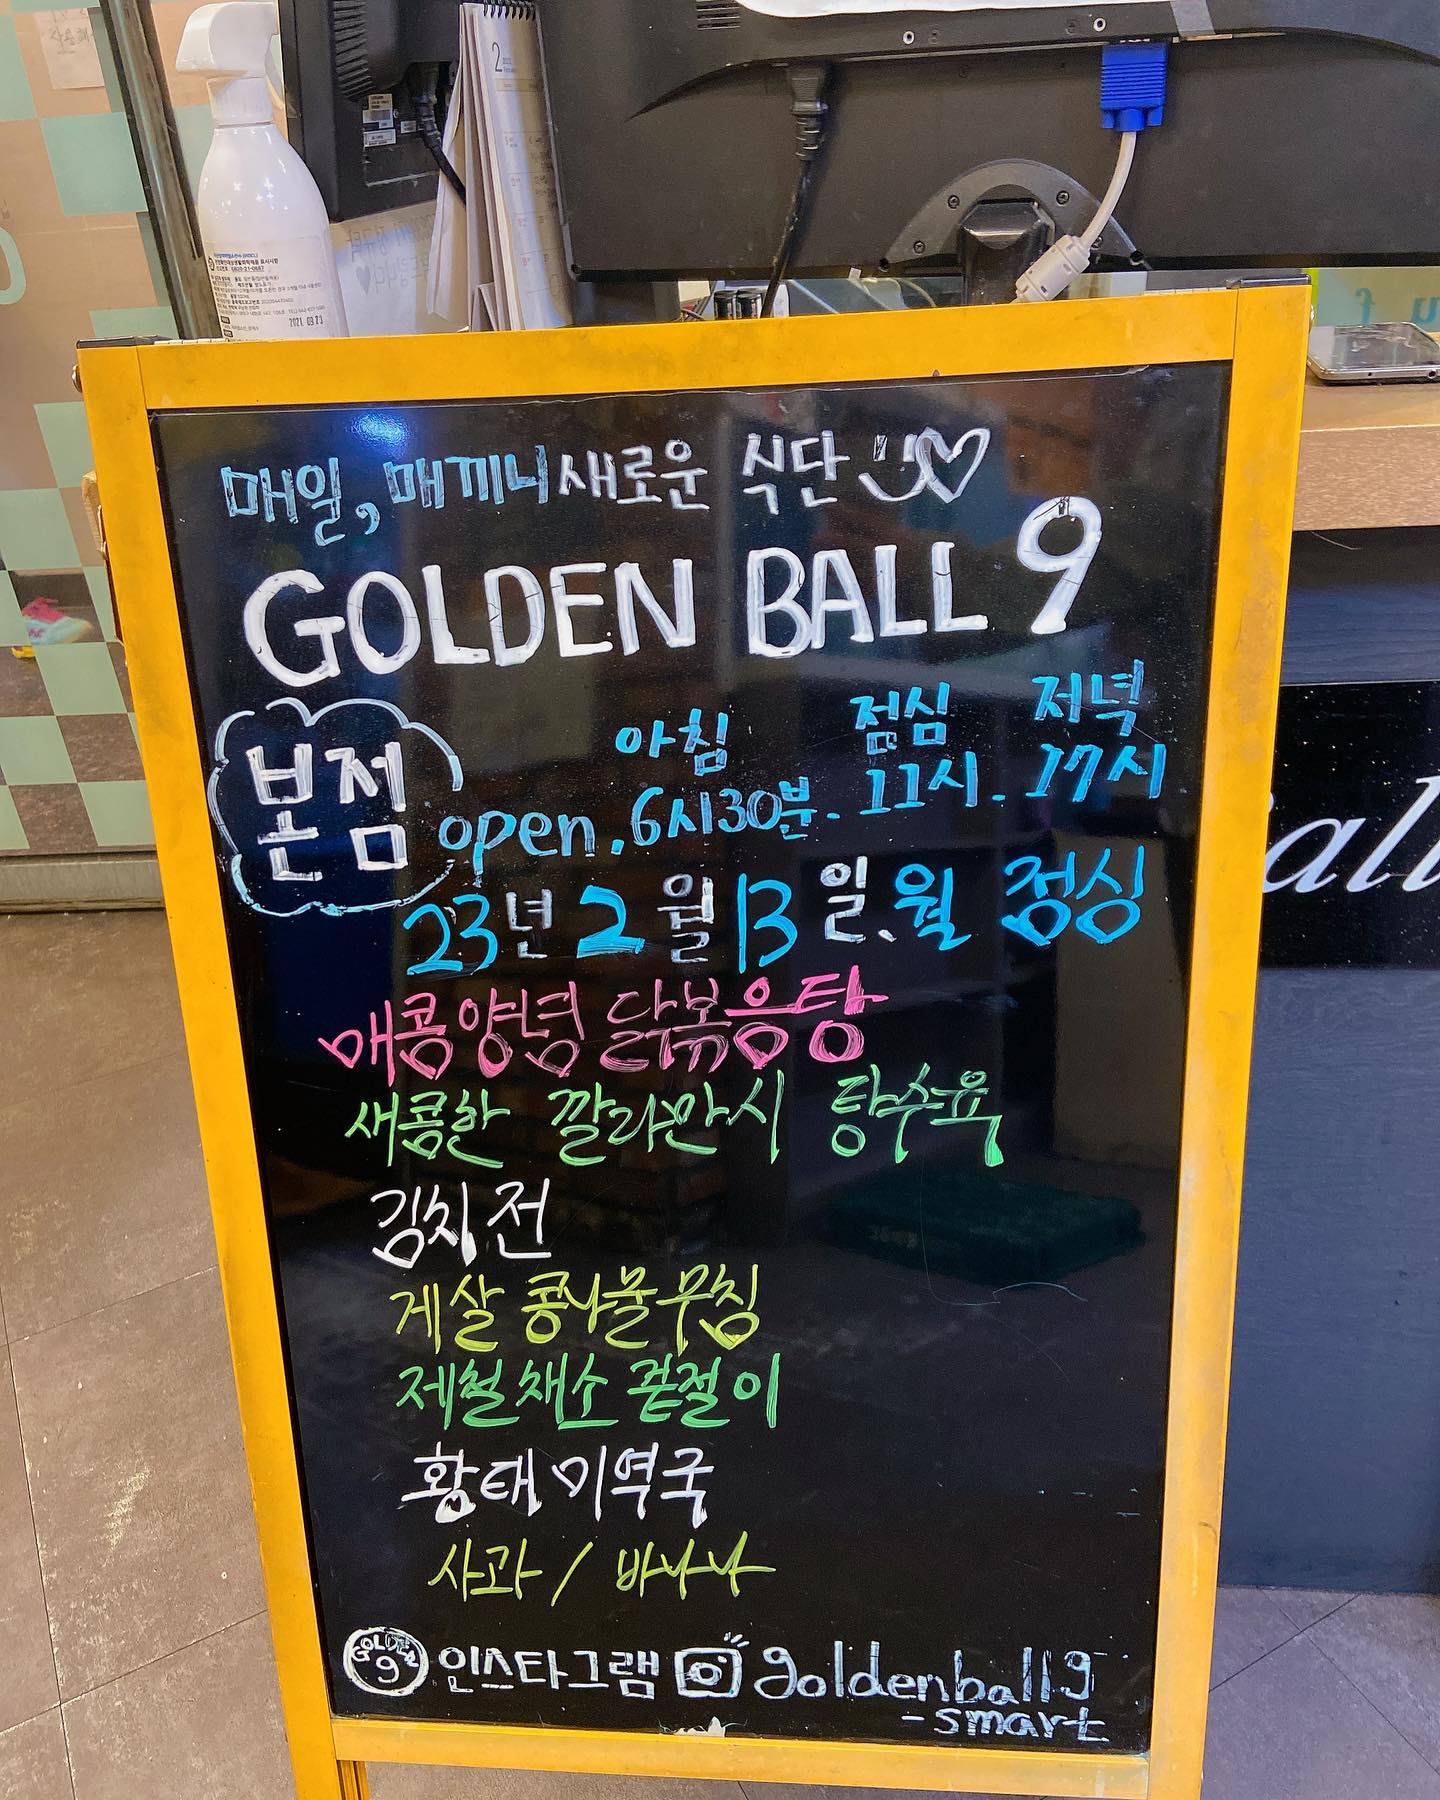 매일, 매끼니 새로운 식단
GOLDEN BALL 9
본점
아침 점심 저녁
open. 6시30분. 11시. 17시
23년 2월 13일. 월 점심
매콤양념 닭볶음탕
새콤한 깔라만시 탕수육
김치전
게살 콩나물무침
제철채소 겉절이
황태미역국
사과 / 바나나
GOLDEN 9 인스타그램 goldenball9
-smart
2021. 09. 23
2
all